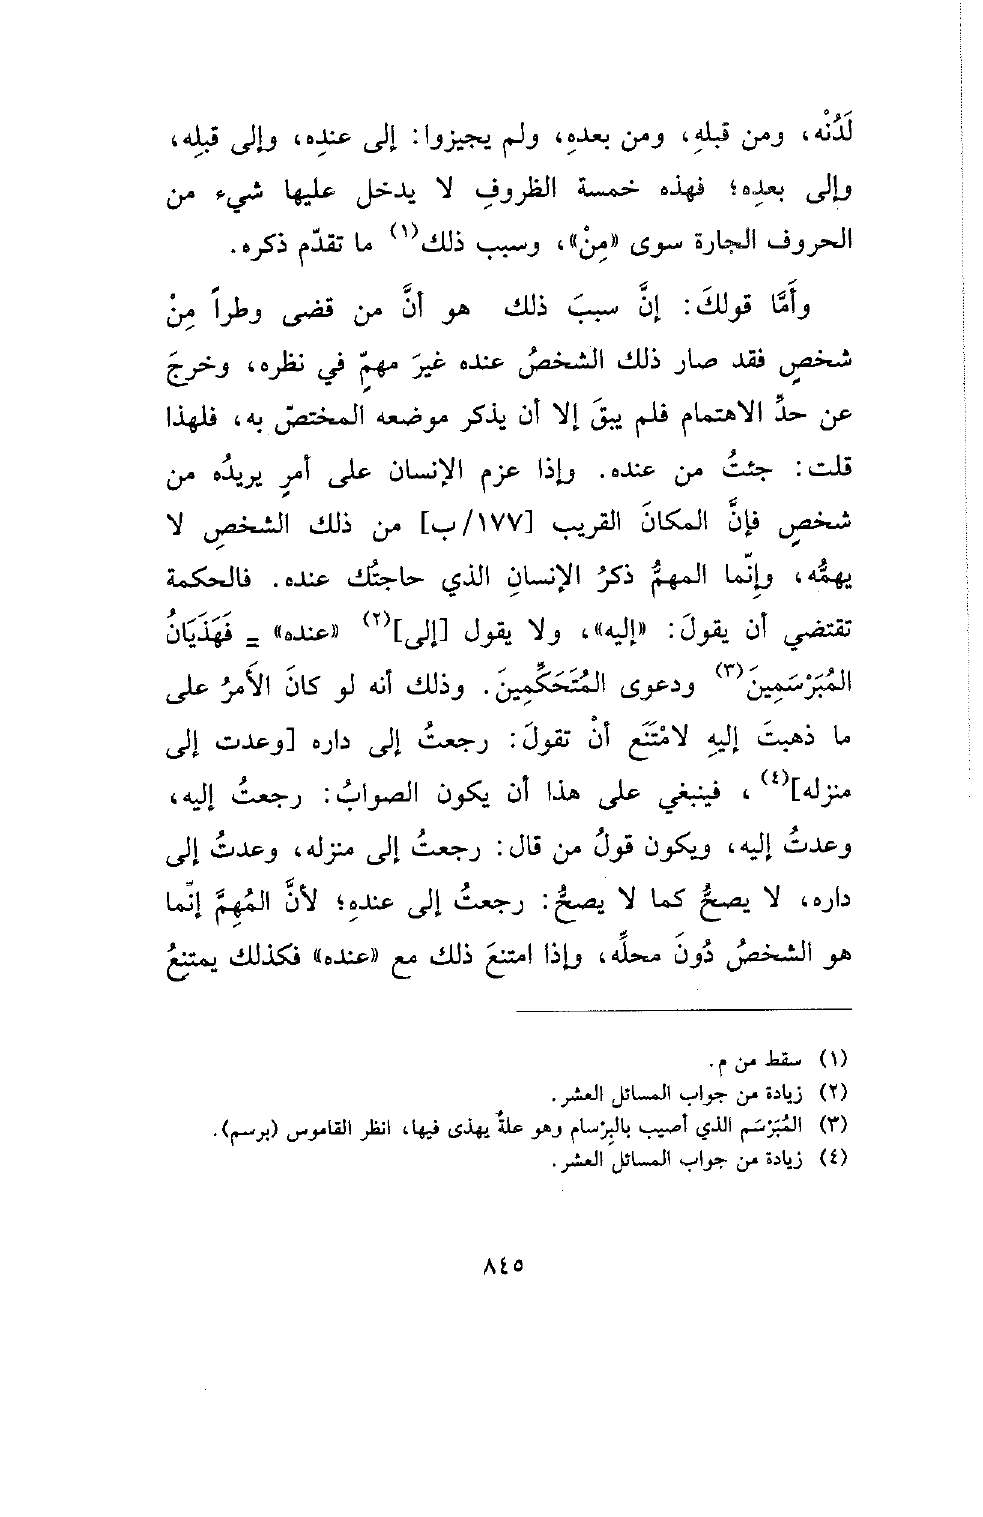 لَدُنْه، ومن قبلهِ، ومن بعدهِ، ولم يجيزوا: إلى عندِه، وإلى قبلِه،
وإلى بعدِه؛ فهذه خمسة الظروفِ لا يدخل عليها شيء من
الحروف الجارة سوى «مِنْ»، وسبب ذلك(١) ما تقدّم ذكره.
وأَمَّا قولكَ: إنَّ سببَ ذلك هو أنَّ من قضى وطراً مِنْ
شخصٍ فقد صار ذلك الشخصُ عنده غيرَ مهمٍّ في نظره، وخرجَ
عن حدِّ الاهتمام فلم يبقَ إلا أن يذكر موضعه المختصّ به، فلهذا
قلت: جئتُ من عنده. وإذا عزم الإنسان على أمرٍ يريدُه من
شخصٍ فإنَّ المكانَ القريب [١٧٧/ب] من ذلك الشخصِ لا
يهمُّه، وإنّما المهمُّ ذكرُ الإنسانِ الذي حاجتُك عنده. فالحكمة
تقتضي أن يقولَ: «إليه»، ولا يقول [إلى](٢) «عنده» ـ فَهَذَيَانُ
المُبَرْسَمِينَ(٣) ودعوى المُتَحَكِّمِينَ. وذلك أنه لو كانَ الأَمرُ على
ما ذهبتَ إليهِ لامْتَنَع أنْ تقولَ: رجعتُ إلى داره [وعدت إلى
منزله](٤)، فينبغي على هذا أن يكون الصوابُ: رجعتُ إليه،
وعدتُ إليه، ويكون قولُ من قال: رجعتُ إلى منزله، وعدتُ إلى
داره، لا يصحُّ كما لا يصحُّ: رجعتُ إلى عندهِ؛ لأنَّ المُهِمَّ إنّما
هو الشخصُ دُونَ محلِّه، وإذا امتنعَ ذلك مع «عنده» فكذلك يمتنعُ
(١) سقط من م.
(٢) زيادة من جواب المسائل العشر.
(٣) المُبَرْسَم الذي أصيب بالبِرْسام وهو علةٌ يهذى فيها، انظر القاموس (برسم).
(٤) زيادة من جواب المسائل العشر.
٨٤٥